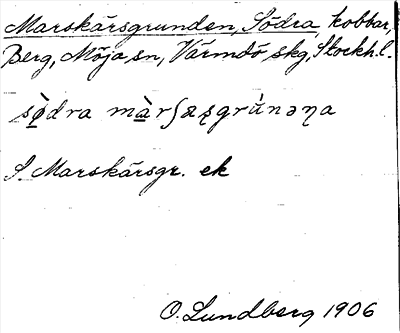 Marskärsgrunden, Södra, kobbar,
Berg, Möja sn, Värmdö skg, Stockh. l.
sø̀dra màrʃæʂgrùnəṇa
S. Marskärsgr. ek
O. Lundberg 1906